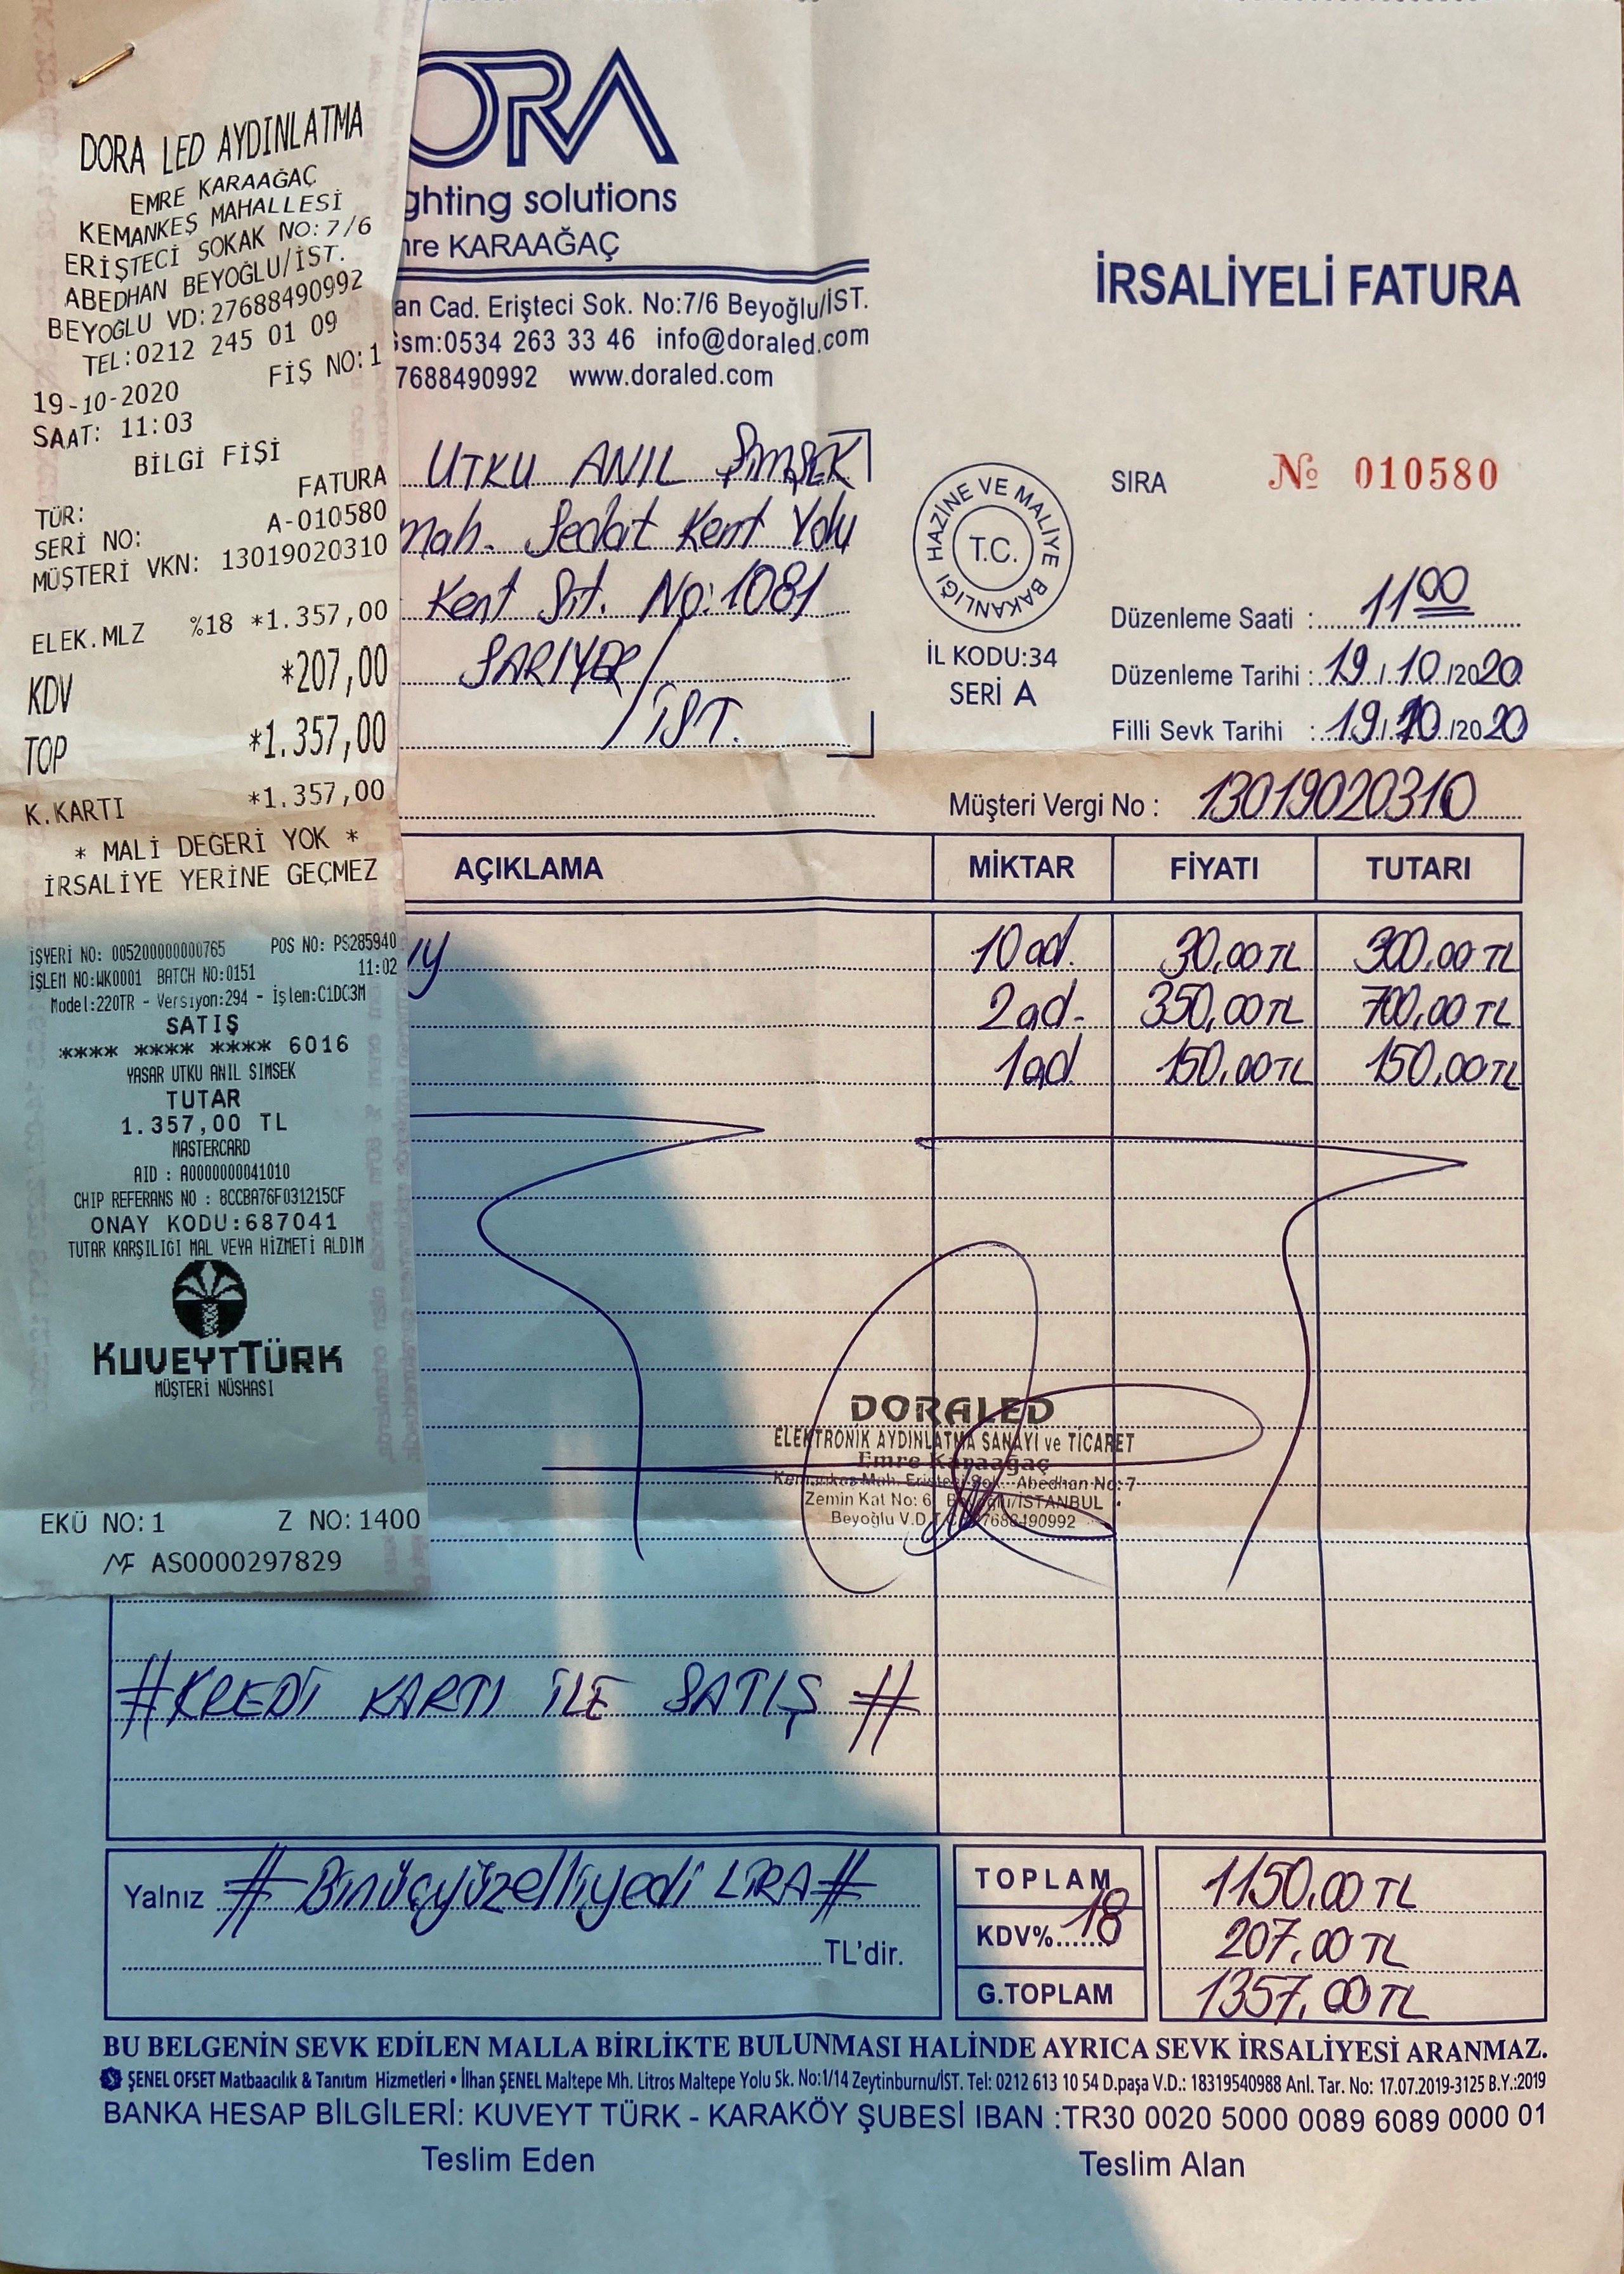 DORA LED AYDINLATMA
EMRE KARAAĞAÇ
KEMANKEŞ MAHALLESİ
ERİŞTECİ SOKAK NO:7/6
ABEDHAN BEYOĞLU/İST.
BEYOĞLU VD:27688490992
TEL:0212 245 01 09
19-10-2020 FİŞ NO:1
SAAT: 11:03
BİLGİ FİŞİ
TÜR: FATURA
SERİ NO: A-010580
MÜŞTERİ VKN: 13019020310
ELEK.MLZ %18 *1.357,00
KDV *207,00
TOP *1.357,00
K.KARTI *1.357,00
* MALİ DEĞERİ YOK *
İRSALİYE YERİNE GEÇMEZ
İŞYERİ NO: 005200000000765 POS NO: PS285940
İŞLEM NO:WK0001 BATCH NO:0151 11:02
Model:220TR - Versiyon:294 - İşlem:C1DC3M
SATIŞ
**** **** **** 6016
YASAR UTKU ANIL SIMSEK
TUTAR
1.357,00 TL
MASTERCARD
AID : A0000000041010
CHIP REFERANS NO : 8CCBA76F031215CF
ONAY KODU:687041
TUTAR KARŞILIĞI MAL VEYA HİZMETİ ALDIM
KUVEYTTÜRK
MÜŞTERİ NÜSHASI
EKÜ NO:1 Z NO:1400
MF AS0000297829
ORA
ghting solutions
re KARAAĞAÇ
an Cad. Erişteci Sok. No:7/6 Beyoğlu/İST.
sm:0534 263 33 46 info@doraled.com
7688490992 www.doraled.com
İRSALİYELİ FATURA
UTKU ANIL ŞİMŞEK
Mah. Sedat Kent Yolu
Kent Sit. No:1081
SARIYER/İST.
HAZİNE VE MALİYE BAKANLIĞI
T.C.
İL KODU:34
SERİ A
SIRA № 010580
Düzenleme Saati : 11 00
Düzenleme Tarihi : 19/10/2020
Filli Sevk Tarihi : 19/10/2020
Müşteri Vergi No : 13019020310
AÇIKLAMA MİKTAR FİYATI TUTARI
10 ad. 30,00 TL 300,00 TL
2 ad. 350,00 TL 700,00 TL
1 ad 150,00 TL 150,00 TL
DORALED
ELEKTRONİK AYDINLATMA SANAYİ ve TİCARET
Emre Karaağaç
Kemankeş Mah. Erişteci Sok. Abedhan No:7
Zemin Kat No: 6 Beyoğlu/İSTANBUL
Beyoğlu V.D.T.C. 27688490992
#KREDİ KARTI İLE SATIŞ #
Yalnız # Binüçyüzelliyedi LİRA #
TL'dir.
TOPLAM 1150,00 TL
KDV% 18 207,00 TL
G.TOPLAM 1357,00 TL
BU BELGENİN SEVK EDİLEN MALLA BİRLİKTE BULUNMASI HALİNDE AYRICA SEVK İRSALİYESİ ARANMAZ.
ŞENEL OFSET Matbaacılık & Tanıtım Hizmetleri • İlhan ŞENEL Maltepe Mh. Litros Maltepe Yolu Sk. No:1/14 Zeytinburnu/İST. Tel: 0212 613 10 54 D.paşa V.D.: 18319540988 Anl. Tar. No: 17.07.2019-3125 B.Y.:2019
BANKA HESAP BİLGİLERİ: KUVEYT TÜRK - KARAKÖY ŞUBESİ IBAN :TR30 0020 5000 0089 6089 0000 01
Teslim Eden Teslim Alan